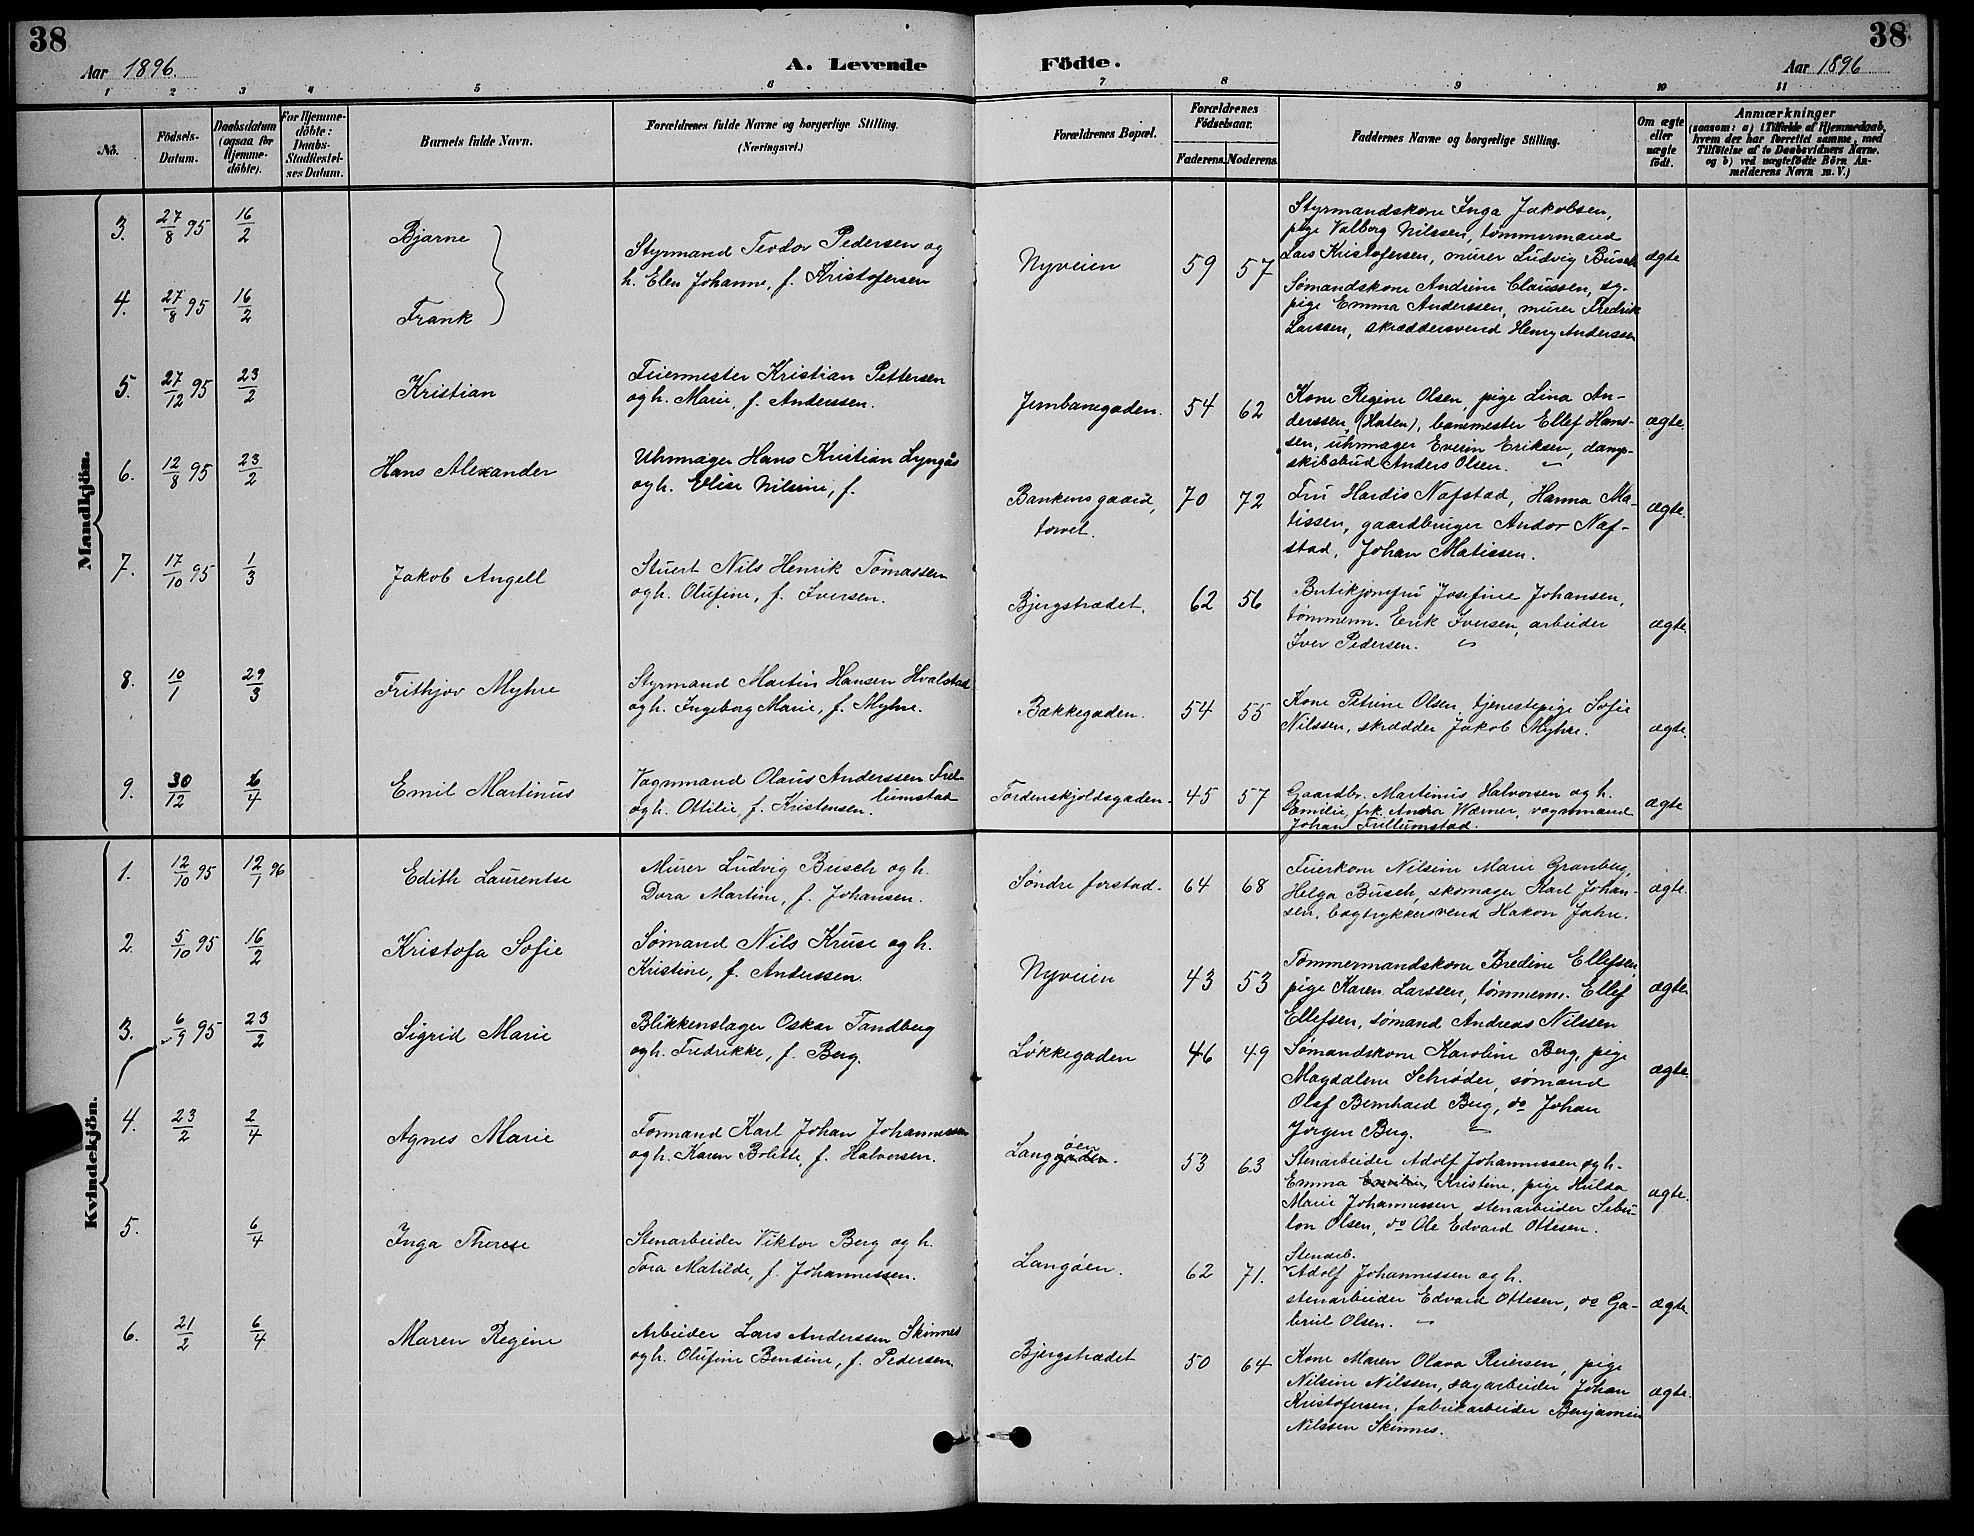 38
38
Aar 1896.
A. Levende
Födte.
Aar 1896
1 2 3 4 5 6 7 8 9 10 11
No.
Födsels-Datum.
Daabsdatum (ogsaa for Hjemme-döbte).
For Hjemme-döbte: Daabs-Stadfæstel-ses Datum.
Barnets fulde Navn.
Forældrenes fulde Navne og borgerlige Stilling.
(Næringsvei.)
Forældrenes Bopæl.
Forældrenes Födselsaar.
Faderens.
Moderens.
Faddernes Navne og borgerlige Stilling.
Om ægte eller uægte födt.
Anmærkninger
(saasom: a) i Tilfælde af Hjemmedaab,
hvem der har forrettet samme, med
Tilföielse af to Daabsvidners Navne,
og b) ved uægtefödte Börn An-
melderens Navn m. V.)
Mandkjön.
3. 27/8 95 16/2 Bjarne
Styrmand Teodor Pedersen og
h. Elen Johanne, f. Kristofersen
Nyveien 59 57
Styrmandskone Inga Jakobsen,
pige Valborg Nilssen, tømmermand
Lars Kristofersen, murer Ludvig Busch
ægte
4. 27/8 95 16/2 Frank
Sømandskone Andrine Claussen, sy-
pige Emma Anderssen, murer Fredrik
Larssen, skræddersvend Henry Anderssen
5. 27/12 95 23/2 Kristian
Feiermester Kristian Pettersen
og h. Marie, f. Anderssen.
Jernbanegaden. 54 62
Kone Regine Olsen, pige Lina An-
derssen, (Haten), banemester Ellef Hans-
sen, uhrmager Evein Eriksen, damp-
skibsbud Anders Olsen.
ægte.
6. 12/8 95 23/2 Hans Alexander
Uhrmager Hans Kristian Lyngås
og h. Elise Nilsine, f.
Bankens gaard,
torvet. 70 72
Fru Hardis Nafstad, Hanna Ma-
tissen, gaardbruger Andor Naf-
stad, Johan Matissen.
ægte.
7. 17/10 95 1/3 Jakob Angell
Stuert Nils Henrik Tomassen
og h. Olufine, f. Iversen.
Bjergstrædet. 62 56
Butikjomfru Josefine Johansen,
tømmerm. Erik Iversen, arbeider
Iver Pedersen.
ægte.
8. 10/1 29/3 Frithjov Myhre
Styrmand Martin Hansen Hvalstad
og h. Ingeborg Marie, f. Myhre.
Bækkegaden. 54 55
Kone Petrine Olsen, tjenestepige Sofie
Nilssen, skrædder Jakob Myhre.
ægte.
9. 30/12 6/4 Emil Martinus
Vognmand Olaus Anderssen Fril-
lumstad
og h. Ottilie, f. Kristensen
Tordenskjoldsgaden. 45 57
Gaardbr. Martinus Halvorsen og h.
Emilie, frk. Andra Wærner, vognmand
Johan Frillumstad.
ægte
Kvindekjön.
1. 12/10 95 12/1 96 Edith Laurentse
Murer Ludvig Busch og h.
Dora Martine, f. Johansen.
Søndre forstad. 64 68
Feierkone Nilsine Marie Granberg,
Helga Busch, skomager Karl Johan-
sen, bogtrykkersvend Hakon Jahre.
ægte.
2. 5/10 95 16/2 Kristofa Sofie
Sømand Nils Kruse og h.
Kristine, f. Anderssen.
Nyveien 43 53
Tømmermandskone Bredine Ellefsen,
pige Karen Larssen, tømmerm. Ellef
Ellefsen, sømand Andreas Nilssen
ægte.
3. 6/9 95 23/2 Sigrid Marie
Blikkenslager Oskar Tandberg
og h. Fredrikke, f. Berg.
Løkkegaden 46 49
Sømandskone Karoline Berg, pige
Magdalene Schrøder, sømand
Olaf Bernhard Berg, do Johan
Jørgen Berg.
ægte.
4. 23/2 2/4 Agnes Marie
Formand Karl Johan Johannessen
og h. Karen Bolette, f. Halvorsen.
Langøen. 53 63
Stenarbeider Adolf Johannessen og h.
Emma Emilie, Kristine, pige Hulda
Marie Johannessen, stenarbeider Sebu-
lon Olsen, do Ole Edvard Ottesen.
ægte.
5. 6/4 Inga Therese
Stenarbeider Viktor Berg og h.
Tora Matilde, f. Johannessen.
Langøen. 62 71.
Stenarb.
Adolf Johannessen og h.
stenarbeider Edvard Ottesen, do Ga-
briel Olsen.
ægte.
6. 21/2 6/4 Maren Regine
Arbeider Lars Anderssen Skinnes
og h. Olufine Bendine, f. Pedersen.
Bjergstrædet 50 64
Kone Maren Olava Reiersen, pige
Nilsine Nilssen, sagarbeider Johan
Kristofersen, fabrikarbeider Benjamin
Nilssen Skinnes.
ægte.